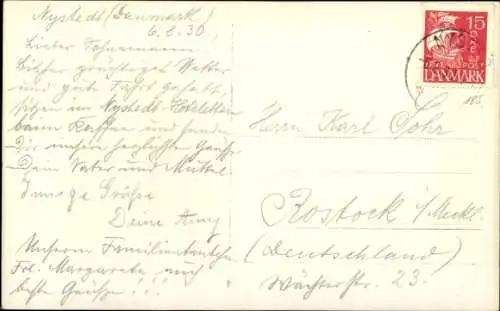 Nystedt (Danmark)
6.8.30.
Lieber Fahnemann!
Bisher günstiges Wetter
und gute Fahrt gehabt,
sitzen im Nystedt Hotel
beim Kaffee und senden
Dir unsere herzlichsten Grüße
Dein Vater und Mutter
Innige Grüße
Deine Anny
Unserem Familientäntchen
Frl. Margarete auch
beste Grüße!!!
15
POST
DANMARK
Herrn Karl Sohr
Rostock i/Meckl.
(Deutschland)
Wächterstr. 23.